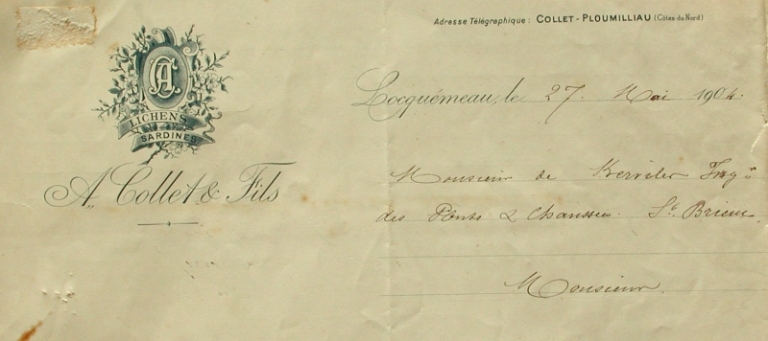 Adresse Télégraphique : COLLET - PLOUMILLIAU (Côtes du Nord)
AC
LICHENS
SARDINES
A. Collet & Fils
Locquémeau, le 27 Mai 1904.
Monsieur de Kerviler Ingr
des Ponts & Chaussées. St. Brieuc.
Monsieur